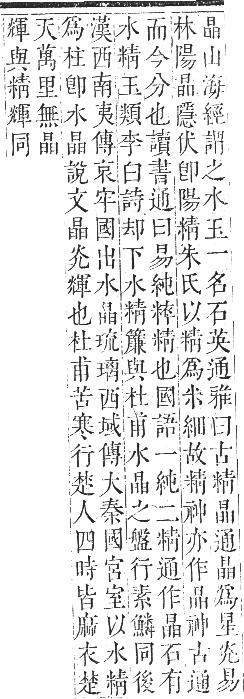 晶山海經謂之水玉一名石英通雅曰古精通晶爲星炗易
林陽晶隱伏卽陽精朱氏以精爲米細故精神亦作晶神古通
而今分也讀書通曰易純粹精也國語一純二精通作晶石有
水精玉類李白詩却下水精簾與杜甫水晶之盤行素鱗同後
漢西南夷傳哀牢國出水晶琉璃西域傳大秦國宮室以水精
爲柱卽水晶說文晶炗輝也杜甫苦寒行楚人四時皆麻衣楚
天萬里無晶
輝與精輝同